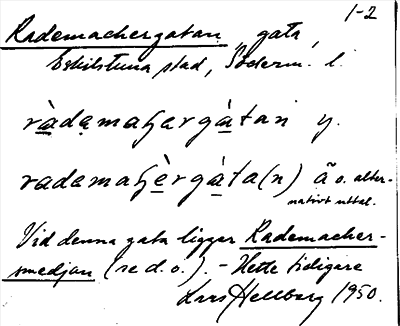 1-2
Rademachergatan, gata,
Eskilstuna stad, Söderm. l.
ràdamaɧərgàtan y.
radamaɧèrgàta(n) ä o. alter-
nativt uttal.
Vid denna gata ligger Rademacher-
smedjan (se d. o.). - Hette tidigare
Lars Hellberg 1950.